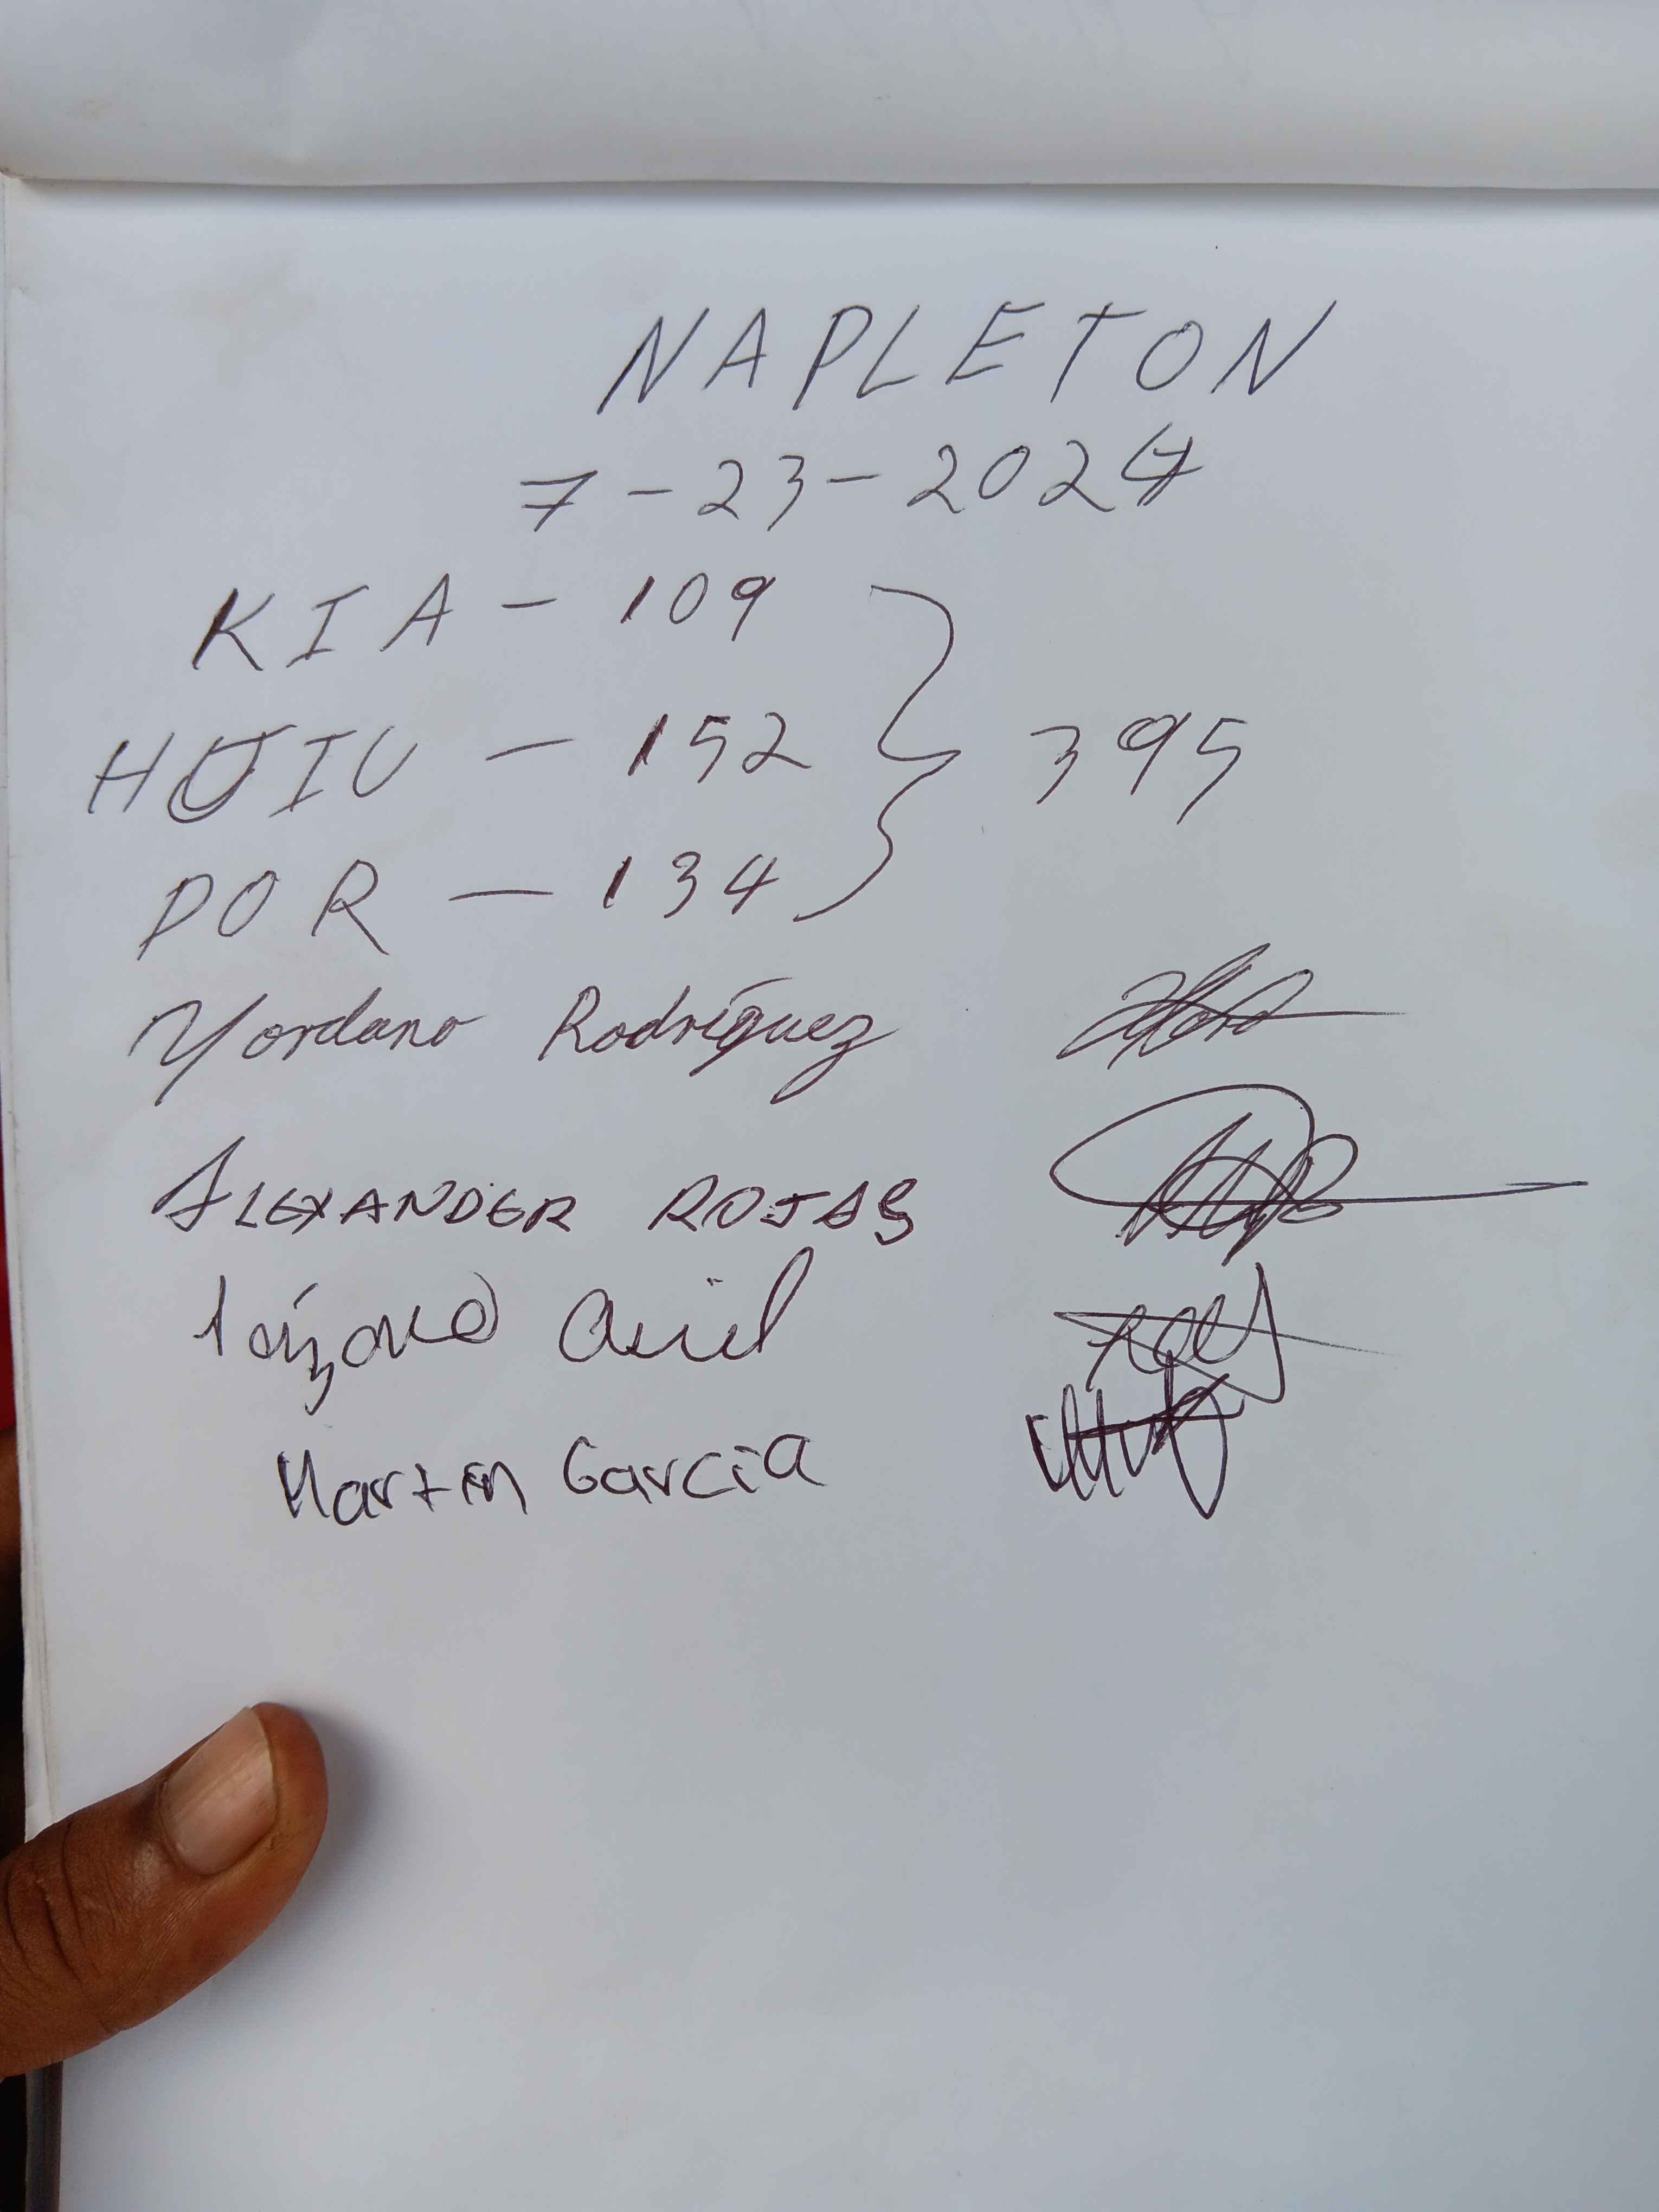 NAPLETON
7-23-2024
KIA - 109
HUIU - 152
395
POR - 134
Yordano Rodríguez
ALEXANDER ROJAS
Lázaro Asiel
Martin Garcia